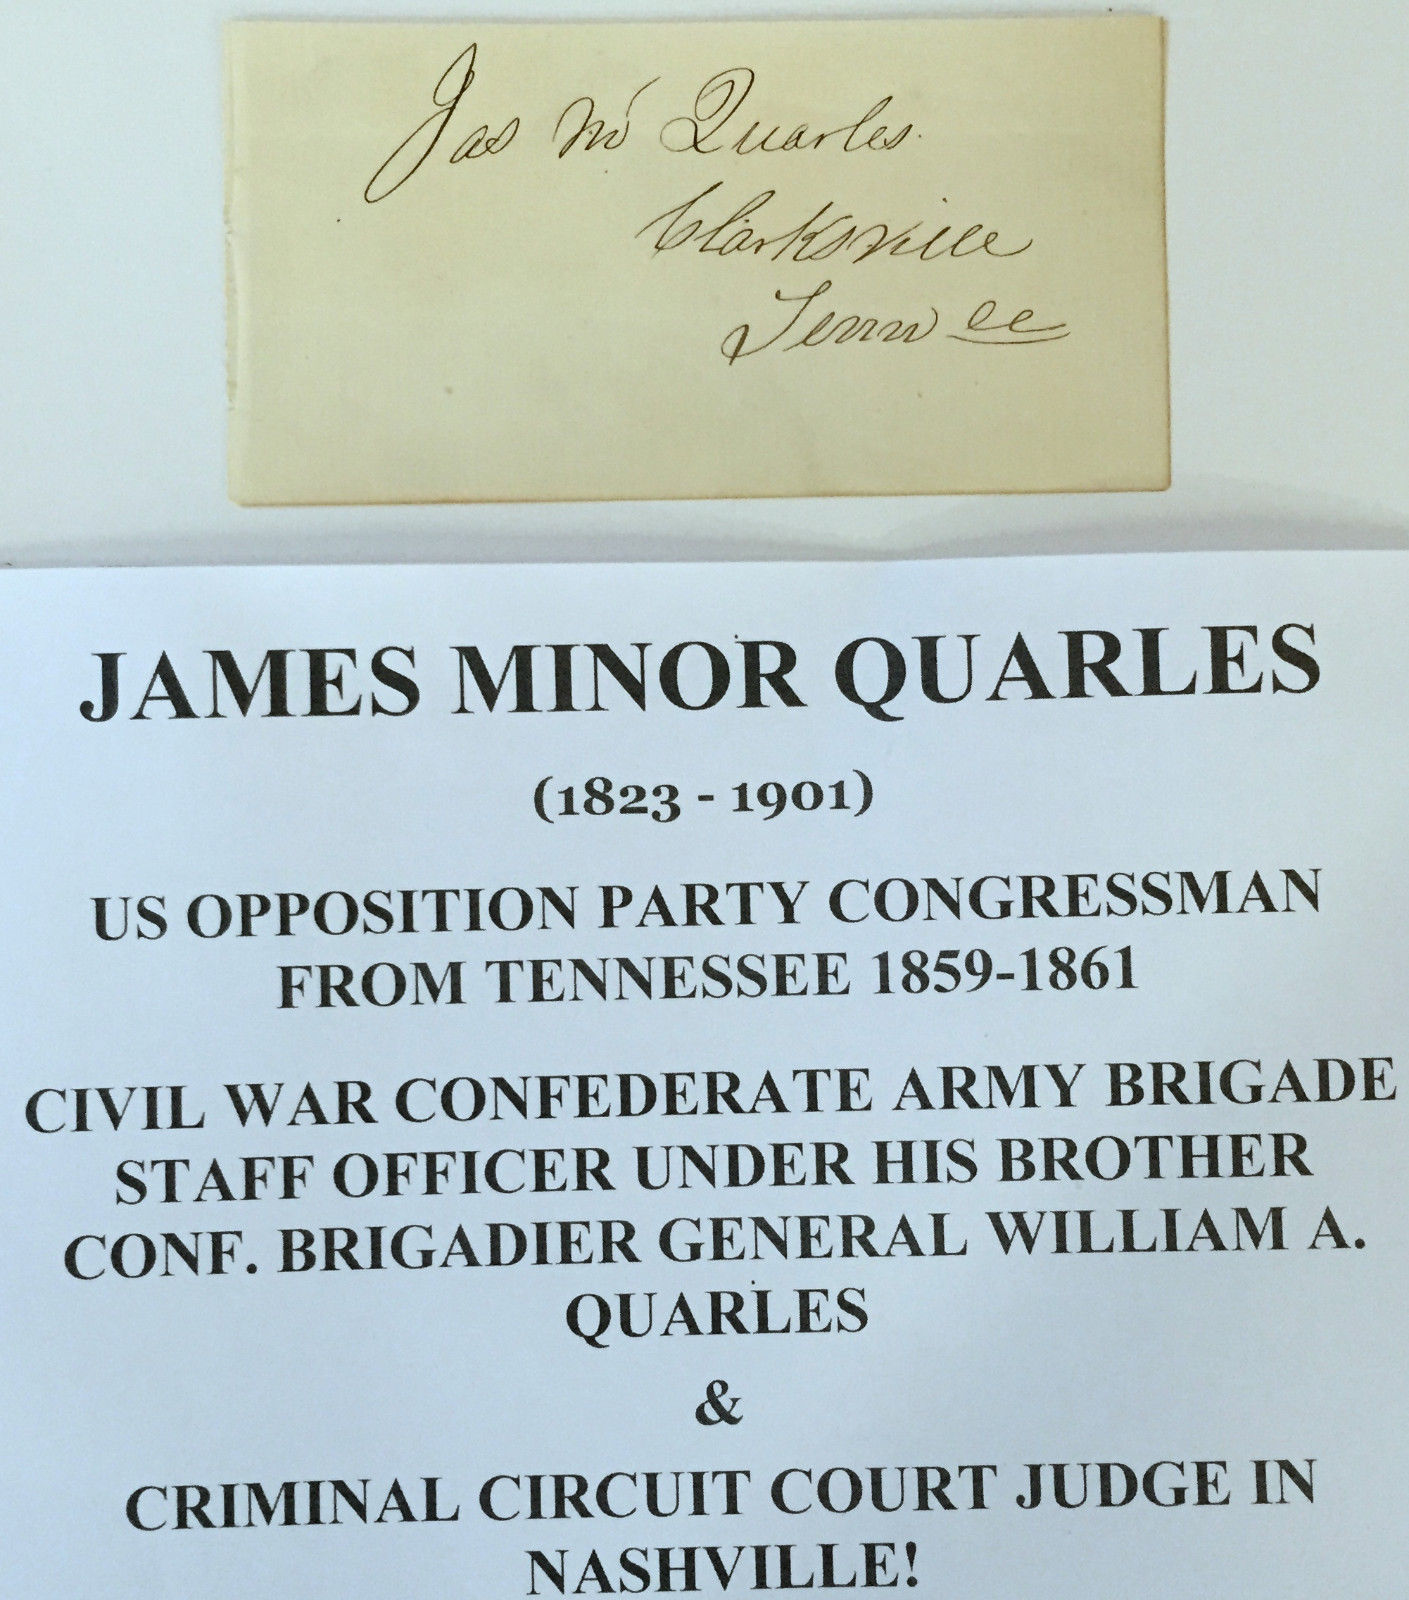 Jas M Quarles
Clarksville
Tennee
JAMES MINOR QUARLES
(1823 - 1901)
US OPPOSITION PARTY CONGRESSMAN
FROM TENNESSEE 1859-1861
CIVIL WAR CONFEDERATE ARMY BRIGADE
STAFF OFFICER UNDER HIS BROTHER
CONF. BRIGADIER GENERAL WILLIAM A.
QUARLES
&
CRIMINAL CIRCUIT COURT JUDGE IN
NASHVILLE!